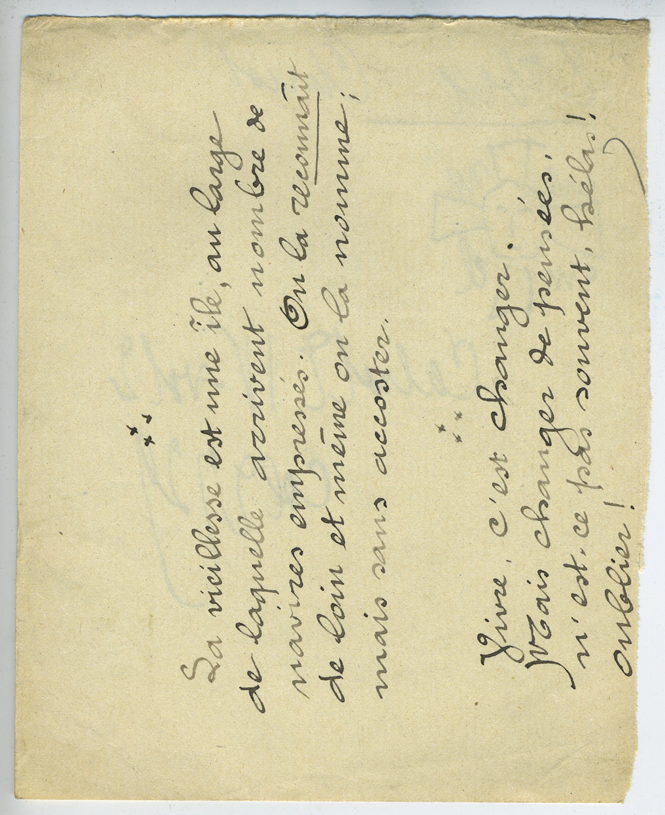 La vieillesse est une île, au large
de laquelle arrivent nombre de
navires empressés. On la reconnaît
de loin et même on la nomme ;
mais sans accoster.
Vivre, c'est changer.
Mais changer de pensées,
n'est-ce pas souvent, hélas !
oublier !